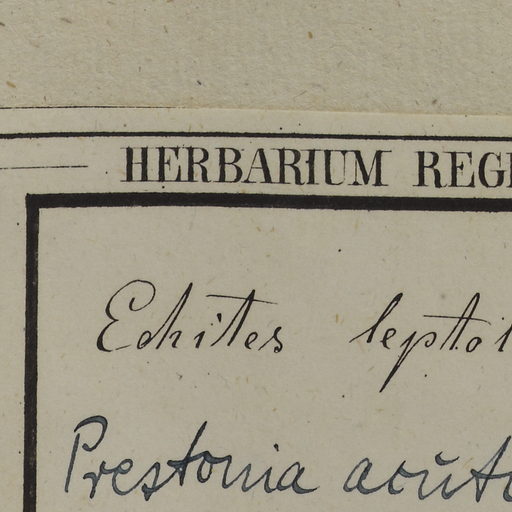 HERBARIUM REGI
Echites leptol
Prestonia acuti